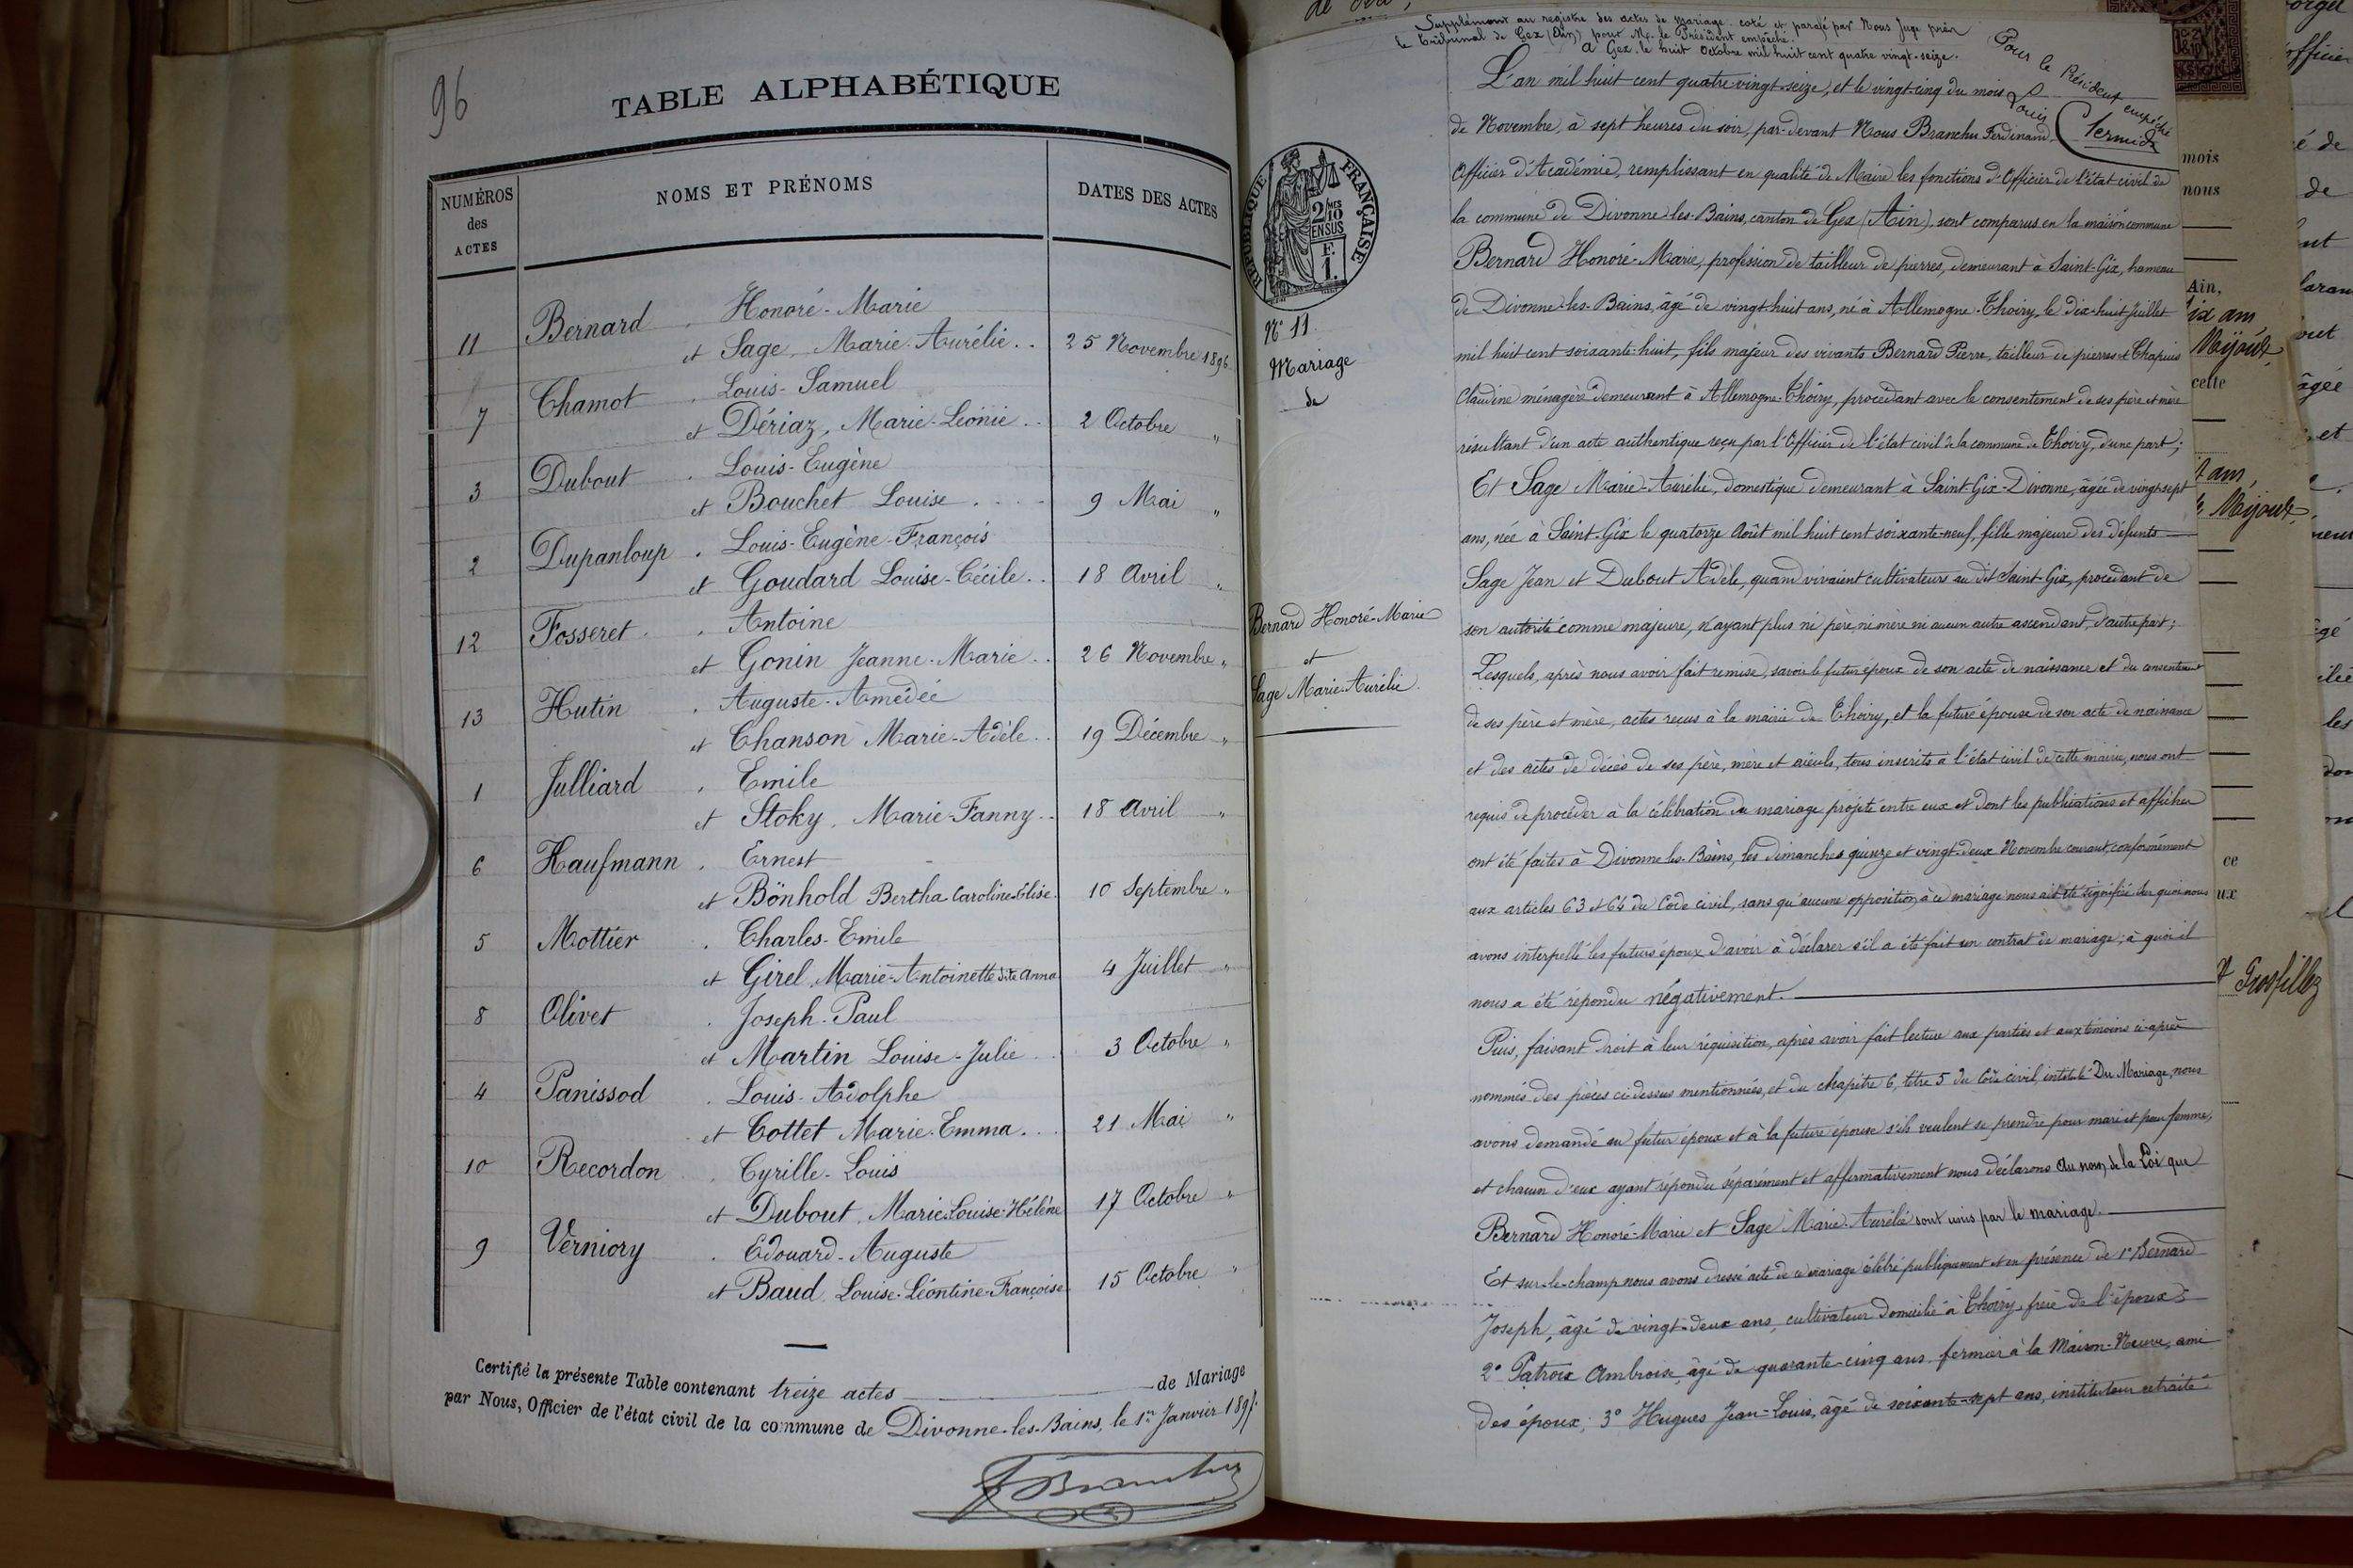 96
TABLE ALPHABÉTIQUE
NUMÉROS des ACTES
NOMS ET PRÉNOMS
DATES DES ACTES
11 Bernard . Honoré-Marie
et Sage, Marie-Aurélie .. 25 Novembre 1896
7 Chamot . Louis-Samuel
et Dériaz, Marie-Léonie .. 2 Octobre "
3 Dubout . Louis-Eugène
et Bouchet Louise .... 9 Mai "
2 Dupanloup . Louis-Eugène-François
et Goudard Louise-Cécile .. 18 Avril "
12 Fosseret . Antoine
et Gonin Jeanne-Marie .. 26 Novembre "
13 Hutin . Auguste-Amédée
et Chanson Marie-Adèle .. 19 Décembre "
1 Julliard . Emile
et Stoky, Marie-Fanny .. 18 Avril "
6 Kaufmann . Ernest
et Bönhold Bertha Caroline Elise . 10 Septembre "
5 Mottier . Charles-Emile
et Girel, Marie-Antoinette dite Anna 4 Juillet "
8 Olivet . Joseph-Paul
et Martin Louise-Julie .. 3 Octobre "
4 Panissod . Louis-Adolphe
et Cottet Marie-Emma ... 21 Mai "
10 Recordon . Cyrille-Louis
et Dubout, Marie-Louise-Hélène 17 Octobre "
9 Verniory . Edouard-Auguste
et Baud, Louise-Léontine-Françoise 15 Octobre "
Certifié la présente Table contenant treize actes de Mariage
par Nous, Officier de l'état civil de la commune de Divonne-les-Bains, le 1er Janvier 1897.
Supplément au registre des actes de mariage coté et parafé par Nous Juge près
le tribunal de Gex (Ain) pour Mr. le Président empêché.
A Gex, le huit Octobre mil huit cent quatre vingt-seize.
Pour le Président empêché
Louis
RÉPUBLIQUE FRANÇAISE
2/10 MES
EN SUS
F.
1.
N° 11.
Mariage
de
Bernard Honoré-Marie
et
Sage Marie-Aurélie.
L'an mil huit cent quatre vingt-seize, et le vingt-cinq du mois
de Novembre, à sept heures du soir, par-devant Nous Branchu Ferdinand,
Officier d'Académie, remplissant en qualité de Maire les fonctions d'Officier de l'état civil de
la commune de Divonne-les-Bains, canton de Gex (Ain), sont comparus en la maison commune
Bernard Honoré-Marie, profession de tailleur de pierres, demeurant à Saint-Gix, hameau
de Divonne-les-Bains, âgé de vingt-huit ans, né à Allemogne-Thoiry, le dix-huit Juillet
mil huit cent soixante-huit, fils majeur des vivants Bernard Pierre, tailleur de pierres et Chapuis
Claudine ménagère demeurant à Allemogne-Thoiry, procédant avec le consentement de ses père et mère
résultant d'un acte authentique reçu par l'Officier de l'état civil de la commune de Thoiry, d'une part;
Et Sage Marie-Aurélie, domestique demeurant à Saint-Gix-Divonne, âgée de vingt-sept
ans, née à Saint-Gix le quatorze Août mil huit cent soixante-neuf, fille majeure des défunts
Sage Jean et Dubout Adèle, quand vivaient cultivateurs au dit Saint-Gix, procédant de
son autorité comme majeure, n'ayant plus ni père, ni mère ni aucun autre ascendant, d'autre part;
Lesquels, après nous avoir fait remise, savoir le futur époux de son acte de naissance et du consentement
de ses père et mère, actes reçus à la mairie de Thoiry, et la future épouse de son acte de naissance
et des actes de décès de ses père, mère et aïeuls, tous inscrits à l'état civil de cette mairie, nous ont
requis de procéder à la célébration du mariage projeté entre eux et dont les publications et affiches
ont été faites à Divonne-les-Bains, les dimanches quinze et vingt-deux Novembre courant, conformément
aux articles 63 et 64 du Code civil, sans qu'aucune opposition à ce mariage nous ait été signifiée. Sur quoi nous
avons interpellé les futurs époux d'avoir à déclarer s'il a été fait un contrat de mariage; à quoi il
nous a été répondu négativement.
Puis, faisant droit à leur réquisition, après avoir fait lecture aux parties et aux témoins ci-après
nommés des pièces ci-dessus mentionnées, et du chapitre 6, titre 5 du Code civil, intitulé Du Mariage, nous
avons demandé au futur époux et à la future épouse s'ils veulent se prendre pour mari et pour femme,
et chacun d'eux ayant répondu séparément et affirmativement nous déclarons au nom de la Loi que
Bernard Honoré-Marie et Sage Marie-Aurélie sont unis par le mariage.
Et sur-le-champ nous avons dressé acte de ce mariage célébré publiquement et en présence de 1° Bernard
Joseph, âgé de vingt-deux ans, cultivateur domicilié à Thoiry, frère de l'époux;
2° Patroix Ambroise, âgé de quarante-cinq ans, fermier à la Maison-Neuve, ami
des époux; 3° Hugues Jean-Louis, âgé de soixante-sept ans, instituteur retraité
mois
nous
Ain,
Mijoux
cette
ans,
Mijoux
ce
ux
officier
de
âgée
et
les